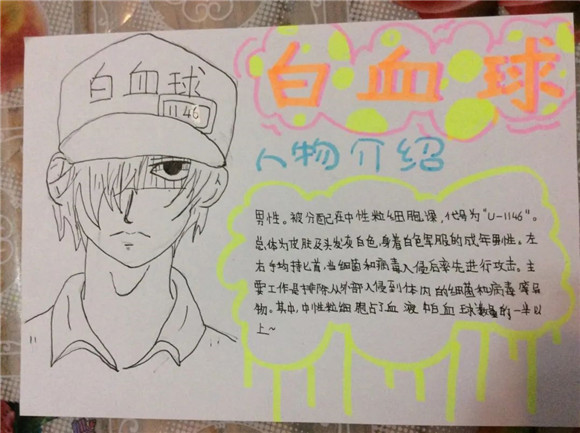 白血球
1146
白血球
人物介绍
男性。被分配在中性粒细胞课,代号为"U-1146"。
总体为皮肤及头发灰白色,身着白色军服的成年男性。左
右手均持匕首,当细菌和病毒入侵后率先进行攻击。主
要工作是排除从外部入侵到体内的细菌和病毒等异
物。其中,中性粒细胞占了血液中白血球数量的一半以
上~